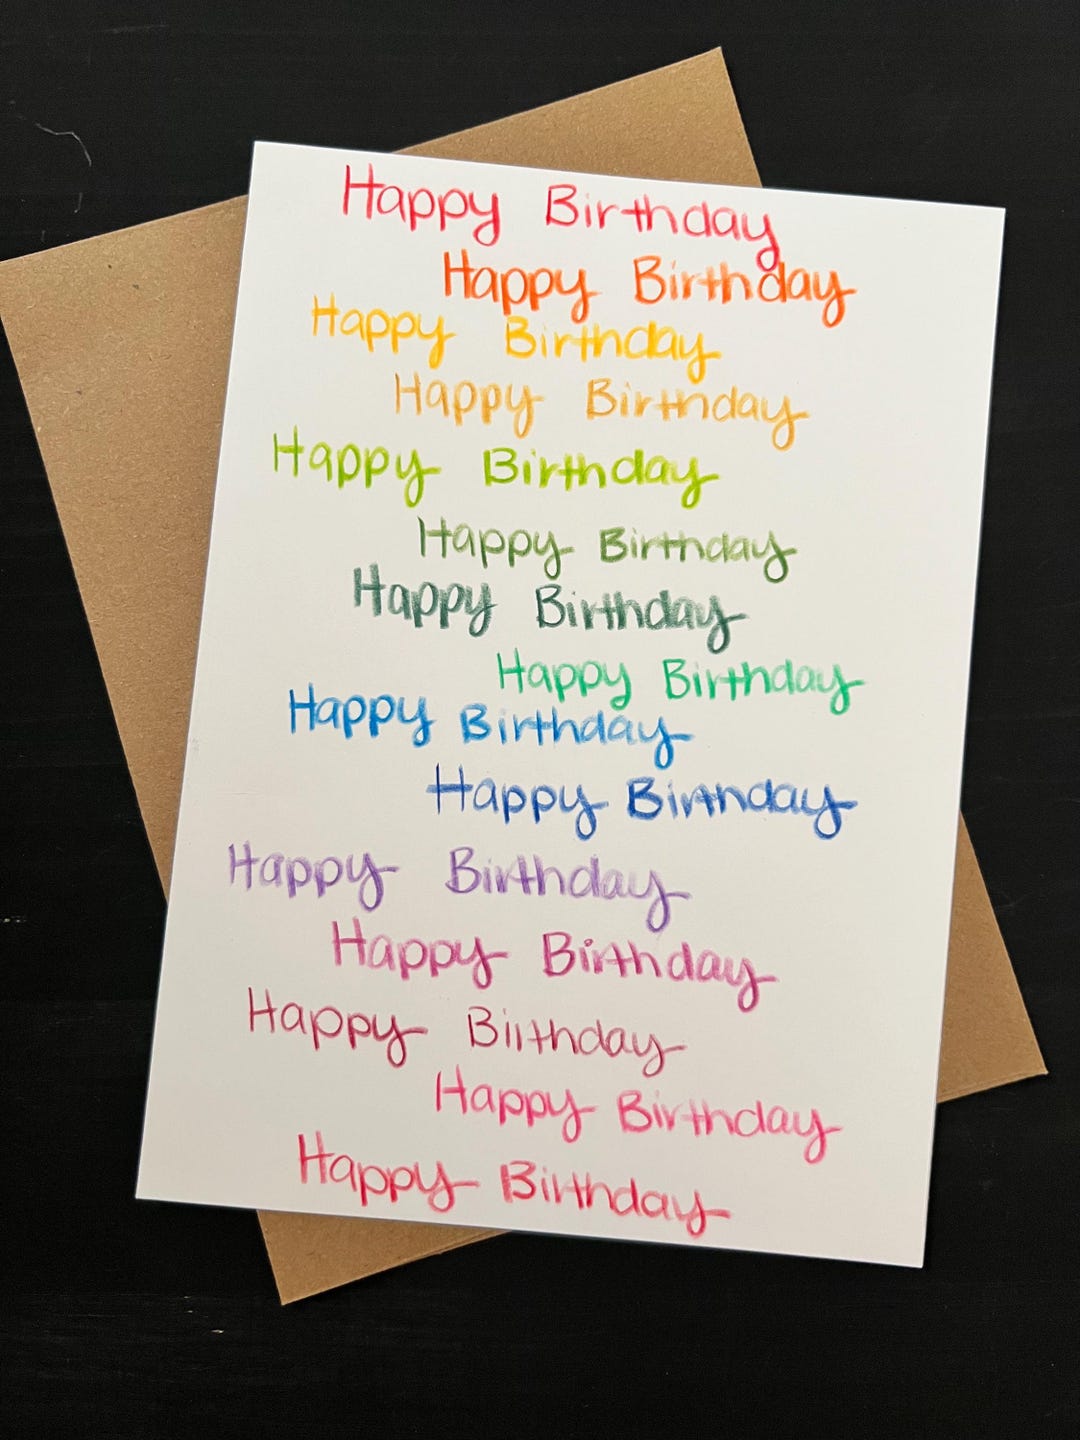 Happy Birthday
Happy Birthday
Happy Birthday
Happy Birthday
Happy Birthday
Happy Birthday
Happy Birthday
Happy Birthday
Happy Birthday
Happy Birthday
Happy Birthday
Happy Birthday
Happy Birthday
Happy Birthday
Happy Birthday